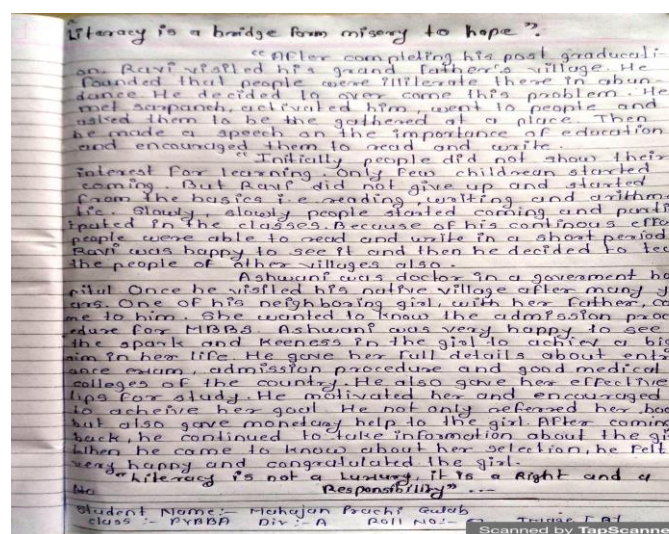 Literacy is a bridge form misery to hope".
"After completing his post graducati-
on. Ravi visiled his grand father's village. He
founded that people were illilerate there in abun-
dance. He decided to over come this problem. He
met sarpanch, activated him, went to people and
asked them to be the gathered at a place. Then
he made a speech on the importance of education
and encouraged them to read and write.
"Initially people did not show their
interest for learning. Only few childrean started
coming. But Ravi did not give up and started
from the basics i.e reading, writing and arithme
tic. Slowly, slowly people started coming and parti
ipated in the classes. Because of his continous effo
people were able to read and write in a short period
Ravi was happy to see it and then he decided to tea
the people of other villages also.
Ashwani was doctor in a goverment ho
pital Once he visiled his native village after many y
ars. One of his neighboring girl, with her father, ca
me to him. She wanted to know the admission proc
edure for MBBS. Ashwani was very happy to see
the spark and keeness in the girl to achiev a big
aim in her life. He gave her full details about entr
ance exam, admission procedure and good medical
colleges of the country. He also gave her effective
tips for study. He motivated her and encouraged
to acheive her goal. He not only referred her boo
but also gave monetary help to the girl. After coming
back, he continued to take information about the gi
When he came to know about her selection, he felt
very happy and congratulated the girl.
"Literacy is not a Luxury, it is a Right and a
Responsibility" ---
Student Name:- Mahajan Prachi Gulab
Class :- FYBBA Div :- A Roll No:-
Scanned by TapScanne